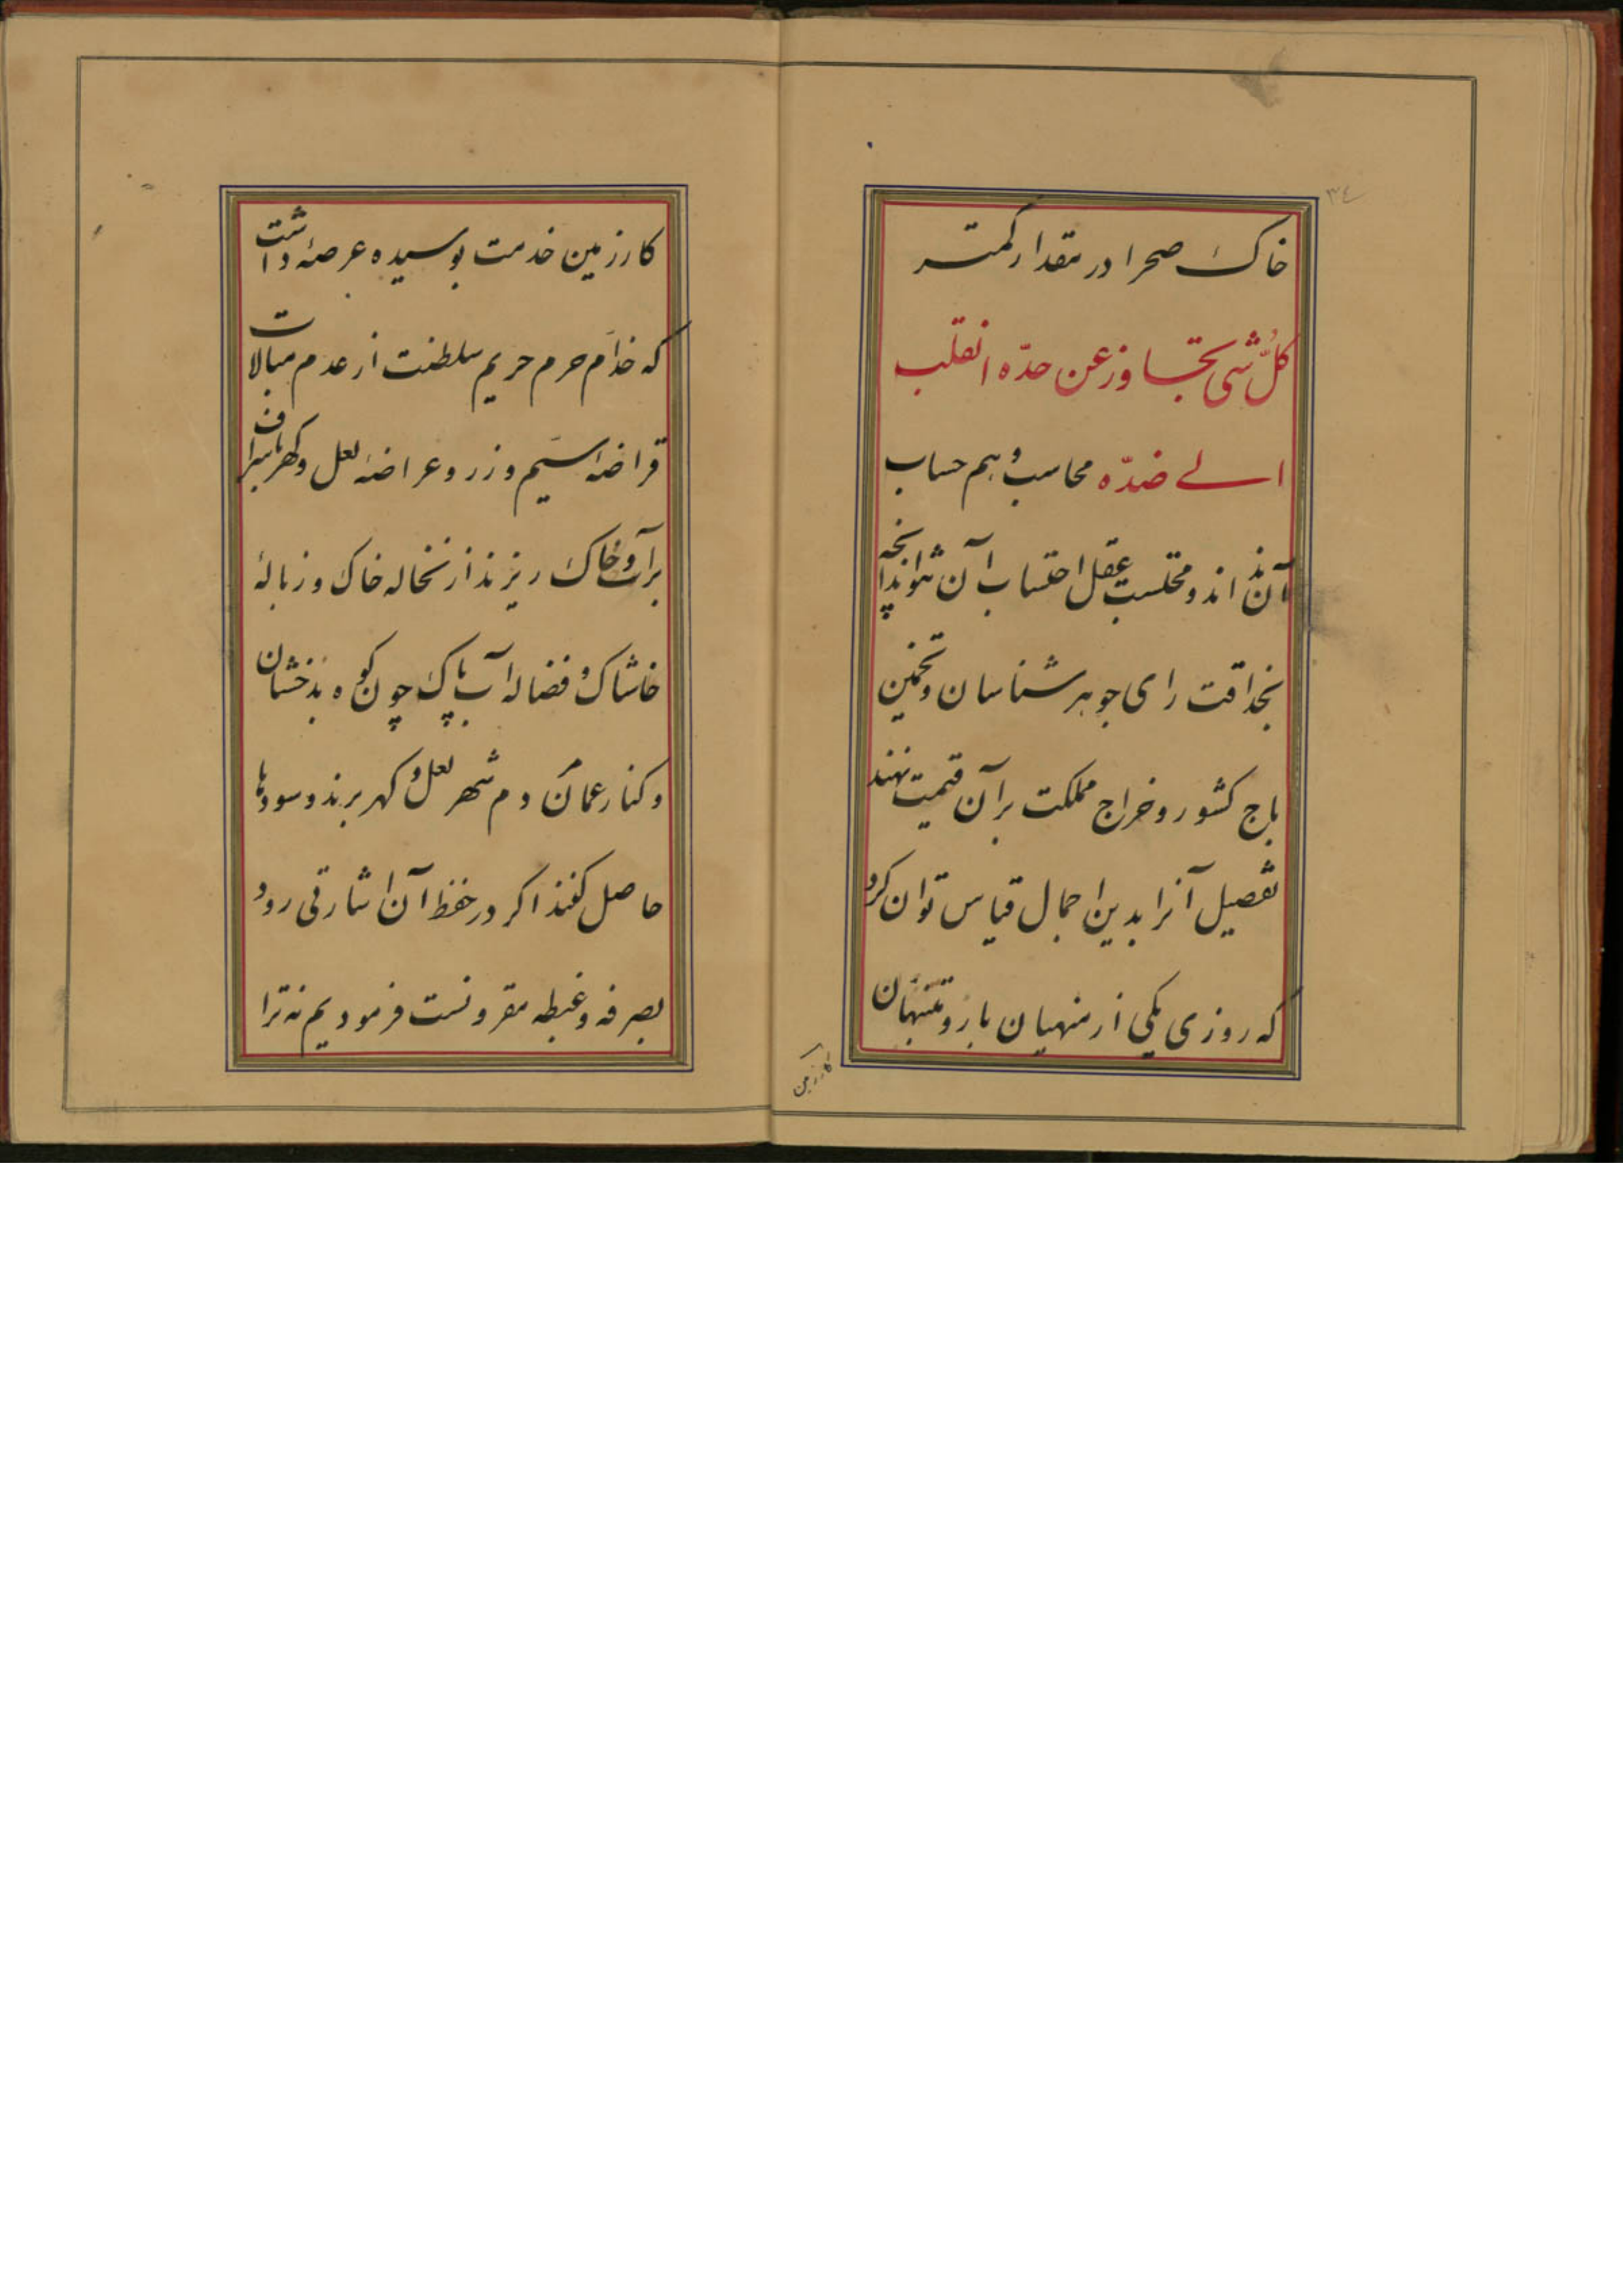 ۳۴
خاک صحرا در مقدار کمتر
کلّ شی تجاوز عن حدّه انقلب
الے ضدّه محاسب وهم حساب
آن نداند و محتسب عقل احتساب آن نتواند آنچه
بحذاقت رای جوهر شناسان و تخمین
باج کشور و خراج مملکت بر آن قیمت نهند
تفصیل آنرا بدین اجمال قیاس توان کرد
که روزی یکی از منهیان بار و
کارزمین
کارزمین خدمت بوسیده عرضه داشت
که خدّام حرم حریم سلطنت از عدم مبالات
قراضهٔ سیم و زر و عراضهٔ لعل و کهر باسراف
بر آب و خاک ریزند از نخاله خاک و زبالهٔ
خاشاک و فضاله آب پاک چون کوه بدخشان
و کنار عمان دم شهر لعل و کهر برند و سودها
حاصل کنند اکر در حفظ آن اشارتی رود
بصرفه و غبطه مقرونست فرمودیم نه ترا